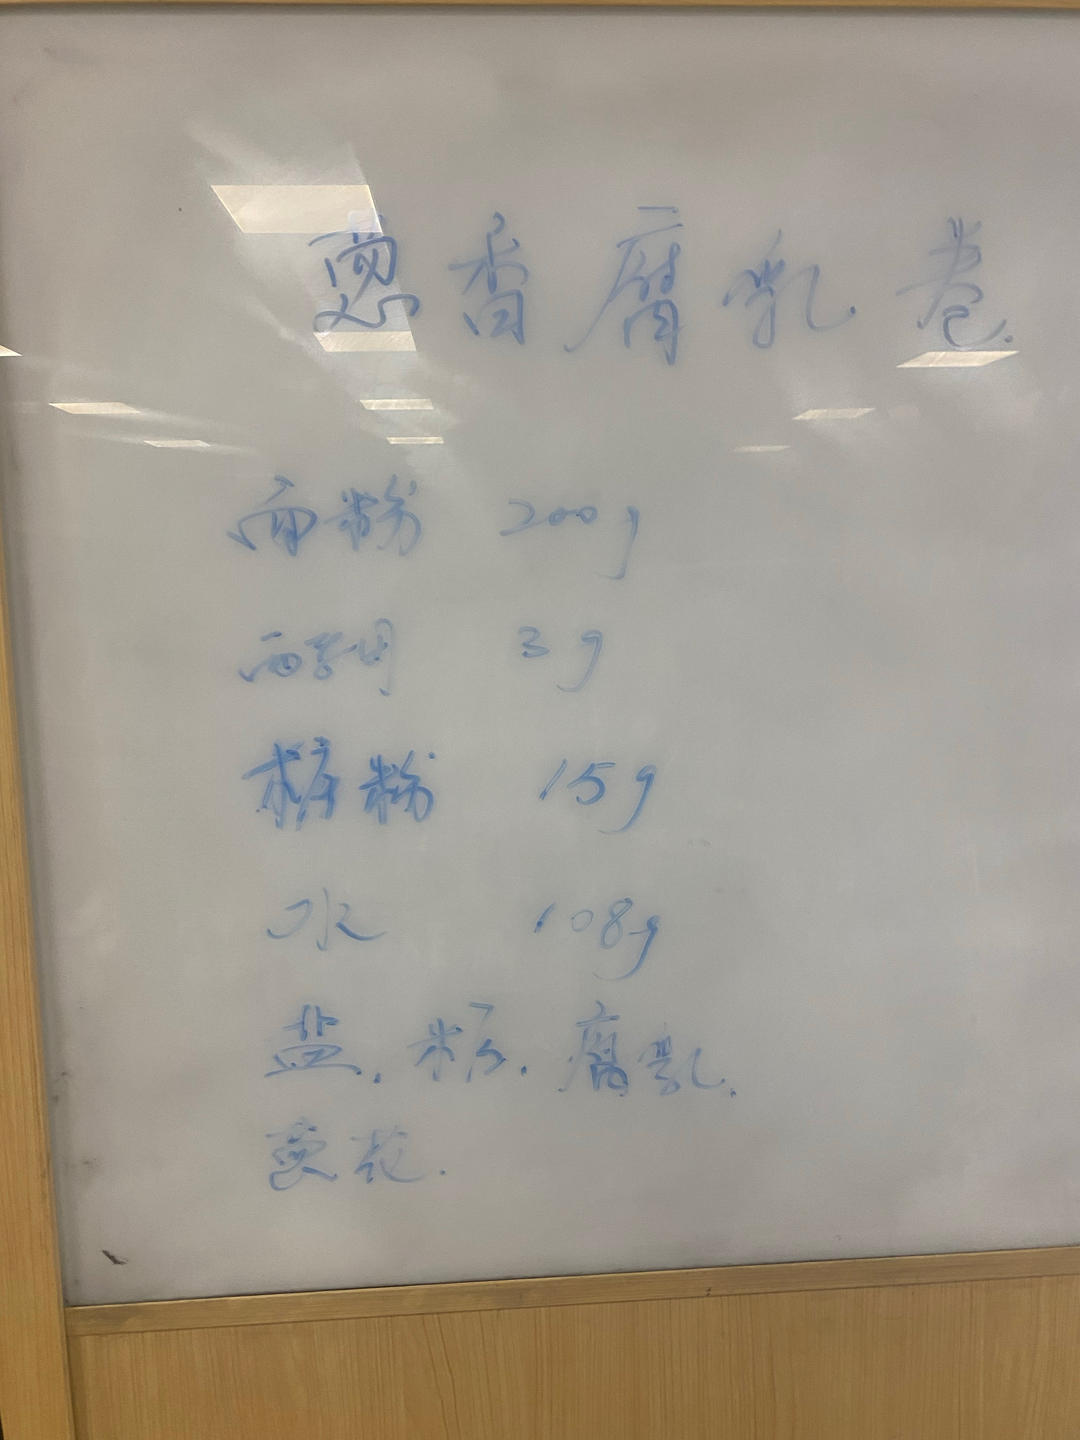 葱香腐乳卷.
面粉 200g
酵母 3g
糖粉 15g
水 108g
盐.糖.腐乳.
葱花.